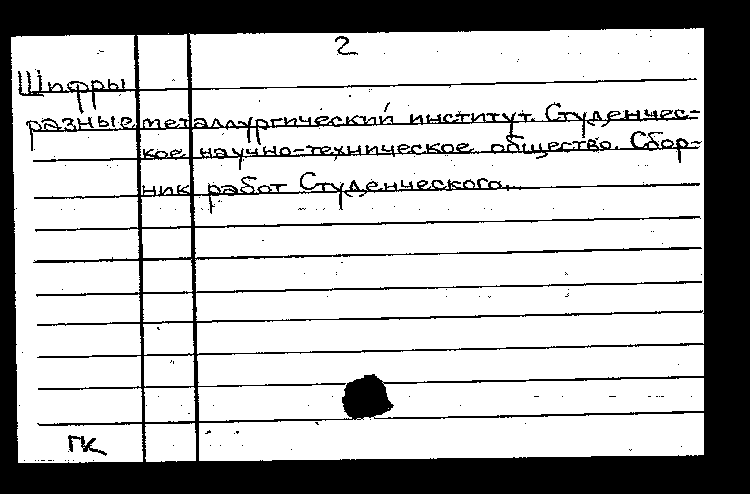 2
Шифры
разные металлургический институт. Студенчес-
кое научно-техническое общество. Сбор-
ник работ Студенческого...
ГК